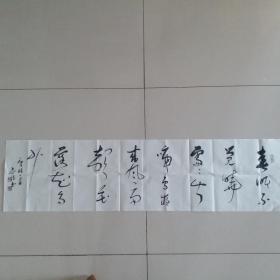 春眠不
觉曉
處々闻
啼鸟夜
来风雨
声花
落知多
少